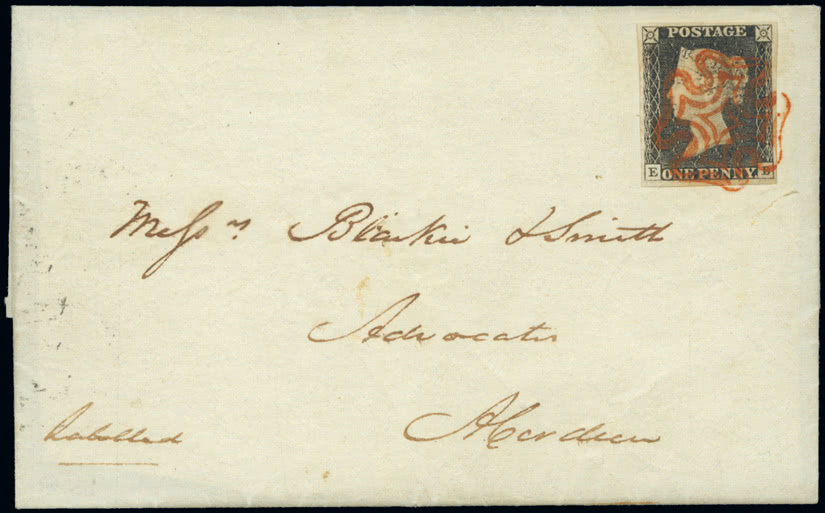 POSTAGE
E ONE PENNY B
Messrs Blaikie & Smith
Advocates
Aberdeen
Labelled